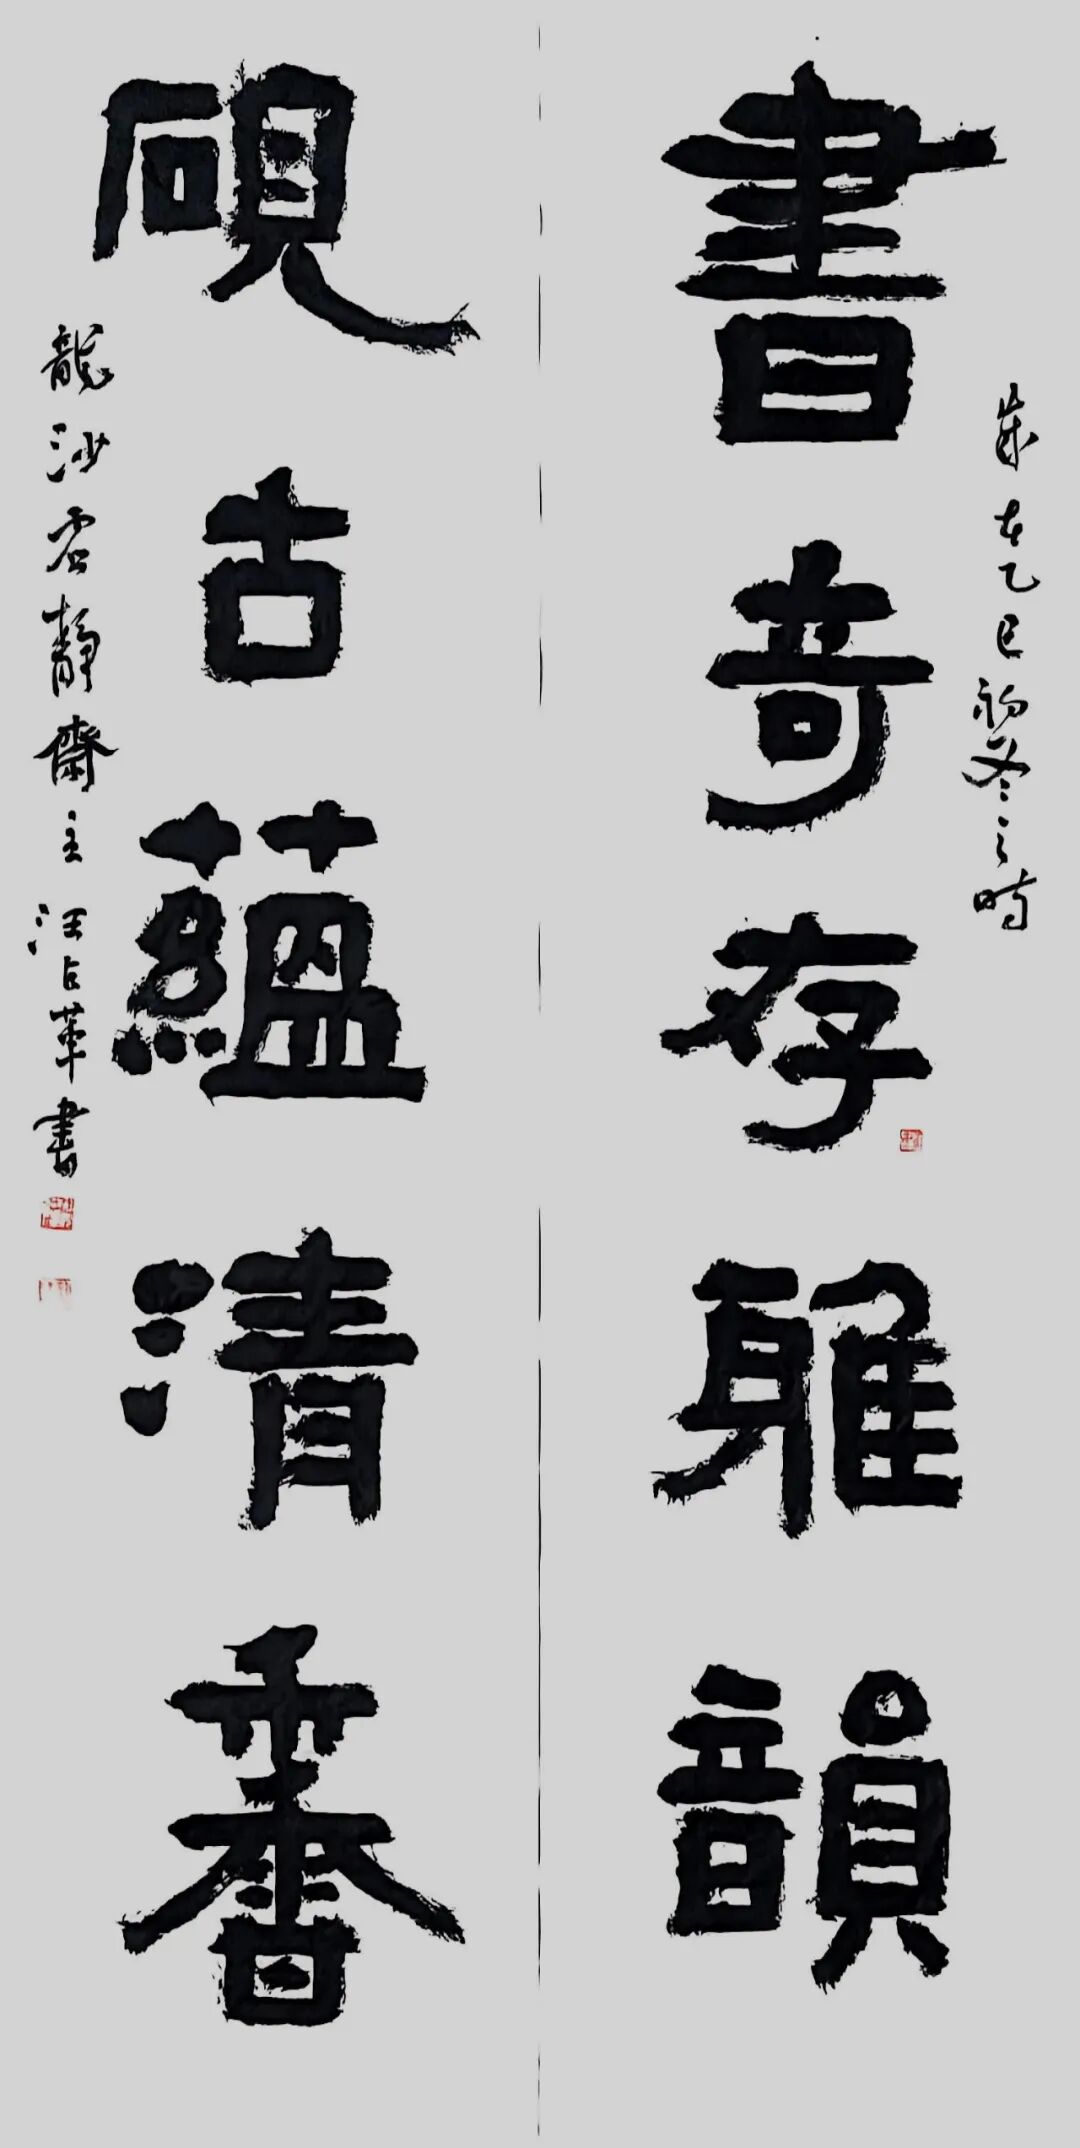 書奇存雅韻
歲在乙巳初冬之時
硯古蘊清香
龍沙虛靜齋主汪占革書